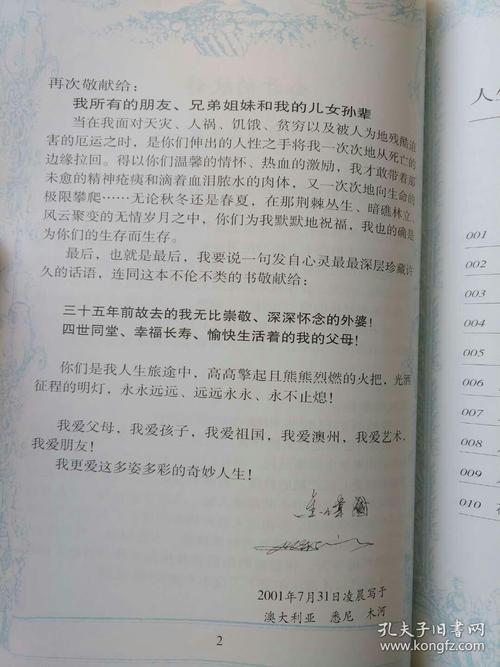 再次敬献给：
我所有的朋友、兄弟姐妹和我的儿女孙辈
当在我面对天灾、人祸、饥饿、贫穷以及被人为地残酷迫
害的厄运之时，是你们伸出的人性之手将我一次次地从死亡的
边缘拉回。得以你们温馨的情怀、热血的激励，我才敢带着那
未愈的精神疮痍和滴着血泪脓水的肉体，又一次次地向生命的
极限攀爬……无论秋冬还是春夏，在那荆棘丛生、暗礁林立、
风云聚变的无情岁月之中，你们为我默默地祝福，我也的确是
为你们的生存而生存。
最后，也就是最后，我要说一句发自心灵最最深层珍藏许
久的话语，连同这本不伦不类的书敬献给：
三十五年前故去的我无比崇敬、深深怀念的外婆！
四世同堂、幸福长寿、愉快生活着的我的父母！
你们是我人生旅途中，高高擎起且熊熊烈燃的火把，光洒
征程的明灯，永永远远、远远永永、永不止熄！
我爱父母，我爱孩子，我爱祖国，我爱澳州，我爱艺术，
我爱朋友！
我更爱这多姿多彩的奇妙人生！
2001年7月31日凌晨写于
澳大利亚 悉尼 木河
2
人生
001
002
003
004
005
006
007
008
009
010
孔夫子旧书网
www.kongfz.com